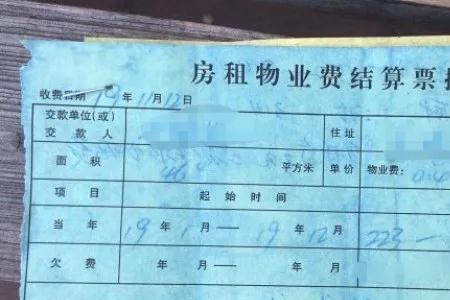 房租物业费结算票
收费日期 19 年 11 月 12 日
交款单位(或)
交款人 住址
面积 46 平方米 单价 物业费: 0.4
项目 起始时间
当年 19 年 1 月 — 19 年 12 月 223 —
欠费 年 月 — 年 月